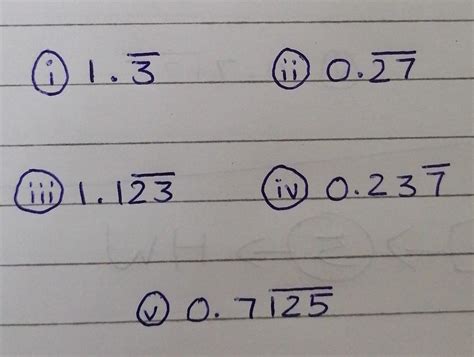 (i) 1.3̅ (ii) 0.2̅7̅
(iii) 1.12̅3̅ (iv) 0.237̅
(v) 0.71̅2̅5̅